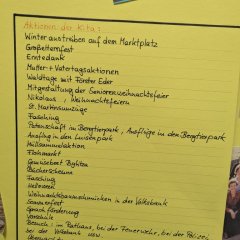 Aktionen der Kita:
Winter austreiben auf dem Marktplatz
Großelternfest
Erntedank
Mutter + Vatertagsaktionen
Waldtage mit Förster Eder
Mitgestaltung der Seniorenweihnachtsfeier
Nikolaus, Weihnachtsfeiern
St. Martinsumzug
Fasching
Patenschaft im Bergtierpark, Ausflüge in den Bergtierpark
Ausflug in den Luisenpark
Müllsammelaktion
Flohmarkt
Gemüsebeet Bigther
Bücherscheune
Fasching
Halloween
Weihnachtsbaumschmücken in der Volksbank
Sommerfest
Sprachförderung
Vorschule
Besuch: im Rathaus, bei der Feuerwehr, bei der Polizei
bei der Volksbank usw.